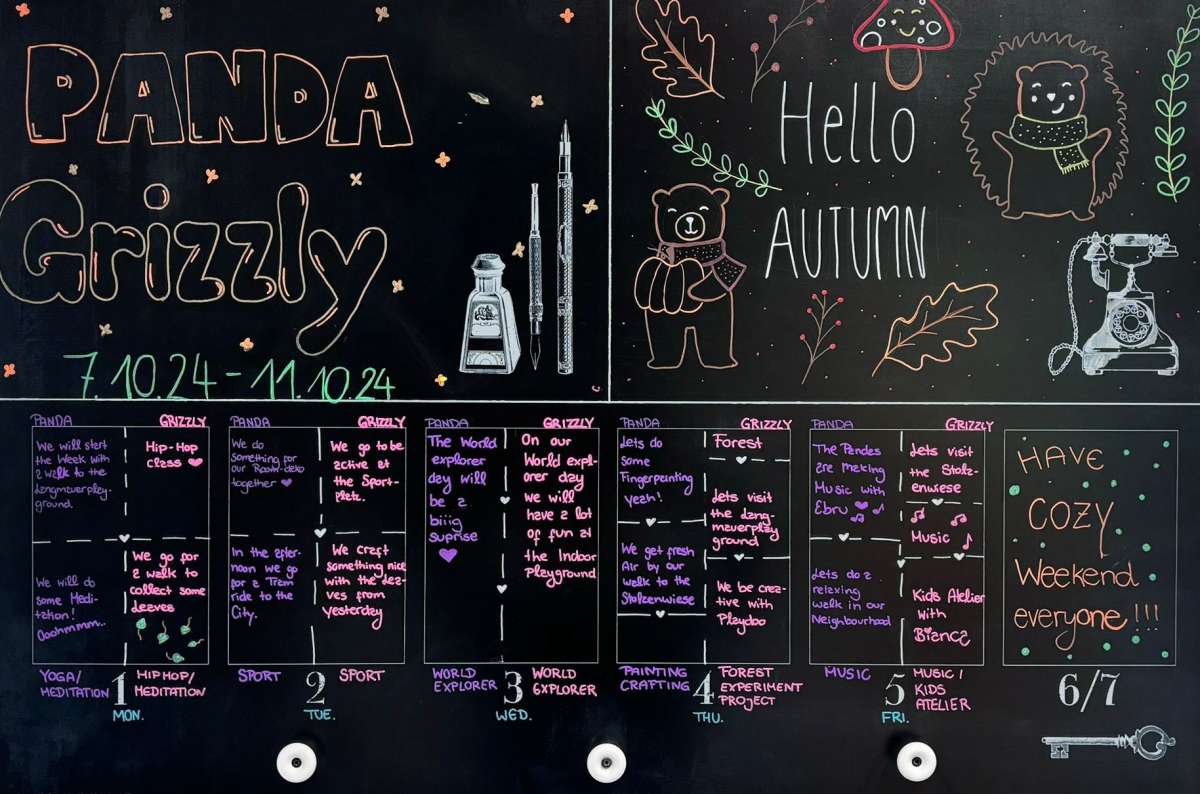 PANDA
Grizzly
7.10.24 - 11.10.24
Hello
AUTUMN
PANDA
We will start
the Week with
a walk to the
Langmauerplay-
ground.
We will do
some Medi-
tation!
Ooohmmm..
YOGA/
MEDITATION
GRIZZLY
Hip-Hop
class
We go for
a walk to
collect some
leaves
HIPHOP/
MEDITATION
1
MON.
PANDA
We do
something for
our
together
In the after-
noon we go
for a Tram
ride to the
City.
SPORT
GRIZZLY
We go to be
active at
the Sport-
platz.
We craft
something nice
with the lea-
ves from
yesterday
SPORT
2
TUE.
PANDA
The World
explorer
day will
be a
biiig
suprise
WORLD
EXPLORER
GRIZZLY
On our
World expl-
orer day
we will
have a lot
of fun at
the Indoor
Playground
WORLD
EXPLORER
3
WED.
PANDA
Lets do
some
Fingerpainting
yeah!
We get fresh
Air by our
walk to the
Stolzenwiese
PAINTING
CRAFTING
GRIZZLY
Forest
Lets visit
the Lang-
mauerplay
ground
We be crea-
tive with
Playdoo
FOREST
EXPERIMENT
PROJECT
4
THU.
PANDA
The Pandas
are making
Music with
Ebru
Lets do a
relaxing
walk in our
Neighbourhood
MUSIC
GRIZZLY
Lets visit
the Stolz-
enwiese
Music
Kids Atelier
with
Bianca
MUSIC/
KIDS
ATELIER
5
FRI.
HAVE
COZY
Weekend
everyone!!!
6/7